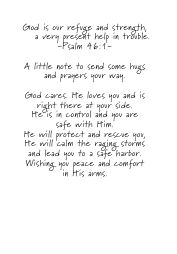 God is our refuge and strength,
a very present help in trouble.
~Psalm 46:1~
A little note to send some hugs
and prayers your way.
God cares. He loves you and is
right there at your side.
He is in control and you are
safe with Him.
He will protect and rescue you,
He will calm the raging storms
and lead you to a safe harbor.
Wishing you peace and comfort
in His arms.